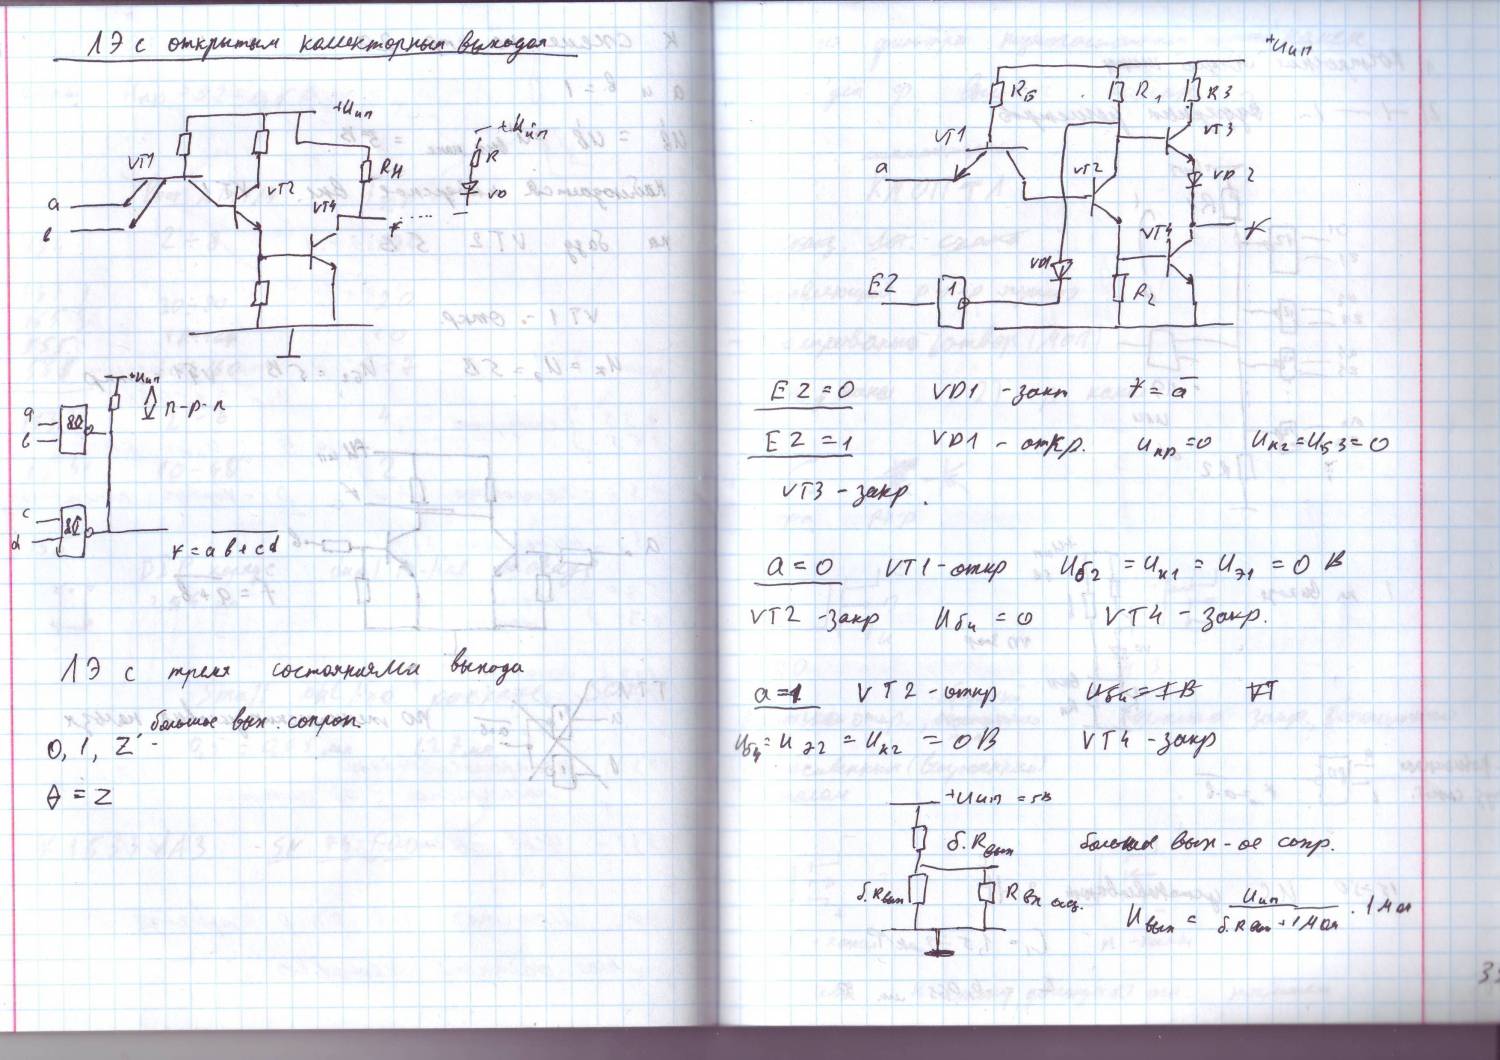 ЛЭ с открытым коллекторным выходом
+Uип
VT1
VT2
RН
VT4
a
в
f
+Uип
R
VD
+Uип
n-p-n
a
в
&
c
d
&
f = ав+cd
ЛЭ с тремя состояниями выхода
0, 1, Z - большое вых. сопрот.
= Z
+Uип
Rб
R1
R3
VT1
VT3
a
VT2
VD2
VT4
f
VD1
E2
1
R2
E2 = 0 VD1 - закп f = a̅
E2 = 1 VD1 - откр. Uпр = 0 Uк2 = Uб3 = 0
VT3 - закр.
a = 0 VT1 - откр Uб2 = Uк1 = Uэ1 = 0 В
VT2 - закр Uб4 = 0 VT4 - закр.
a = 1 VT2 - откр
Uб4 = Uэ2 = Uк2 = 0 В VT4 - закр
+Uип = 5В
б.Rвых большое вых-ое сопр.
б.Rвых
Rвх
Uвых = Uип / б.Rвых + 1МОм · 1МОм